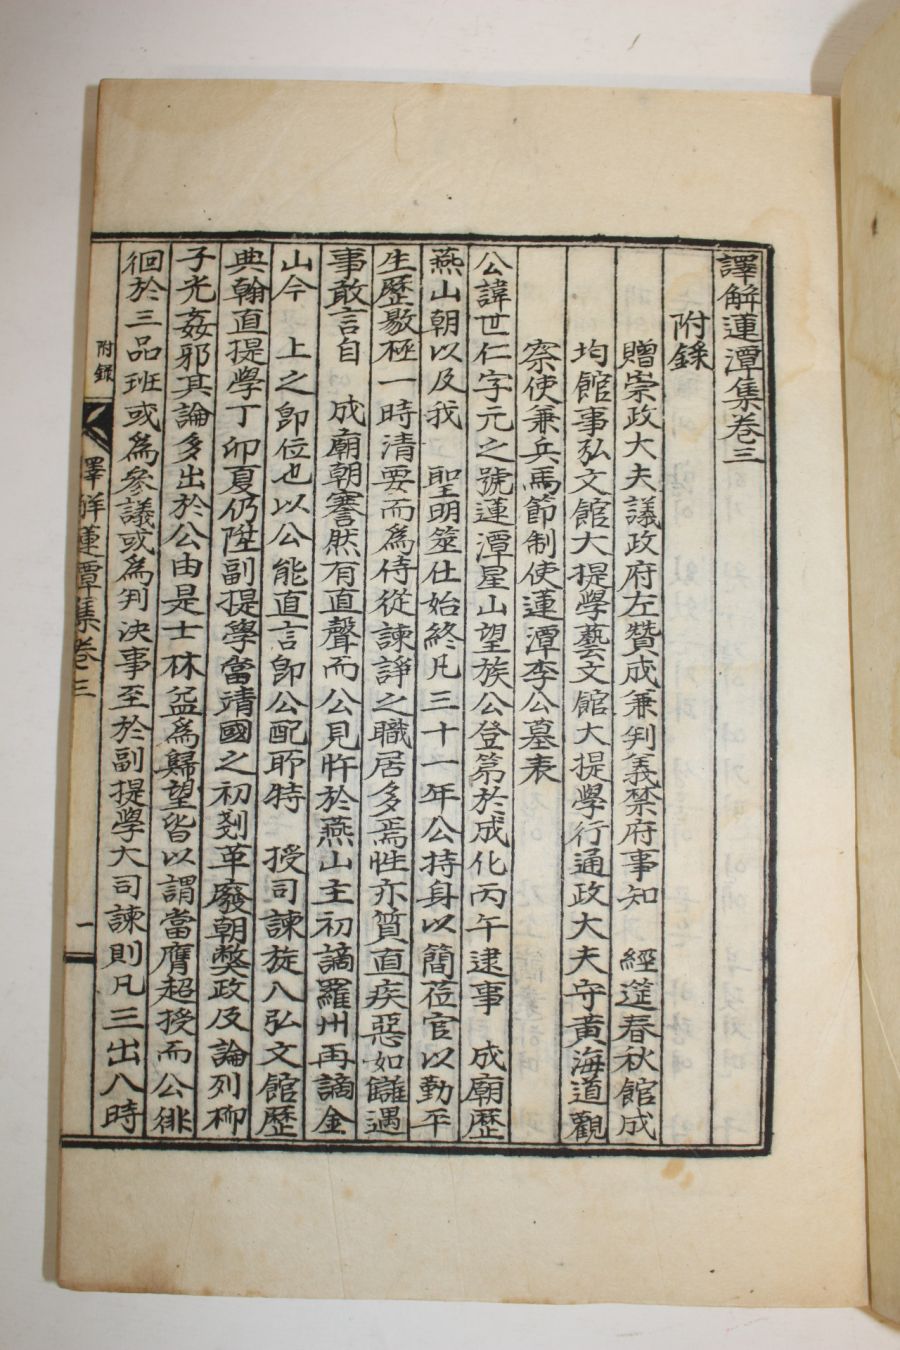 譯解蓮潭集卷三
附錄
贈崇政大夫議政府左贊成兼判義禁府事知　經筵春秋館成
均館事弘文館大提學藝文館大提學行通政大夫守黃海道觀
察使兼兵馬節制使蓮潭李公墓表
公諱世仁字元之號蓮潭星山望族公登第於成化丙午逮事　成廟歷
燕山朝以及我　聖明筮仕始終凡三十一年公持身以簡莅官以勤平
生歷敭極一時清要而爲侍從諫諍之職居多焉性亦質直疾惡如讎遇
事敢言自　成廟朝謇然有直聲而公見忤於燕山主初謫羅州再謫金
山今　上之卽位也以公能直言卽公配所特　授司諫旋入弘文館歷
典翰直提學丁卯夏仍陞副提學當靖國之初剗革廢朝獘政及論列柳
子光姦邪其論多出於公由是士林益爲歸望皆以謂當膺超授而公徘
徊於三品班或爲參議或爲判決事至於副提學大司諫則凡三出入時
附錄
譯解蓮潭集卷三
一